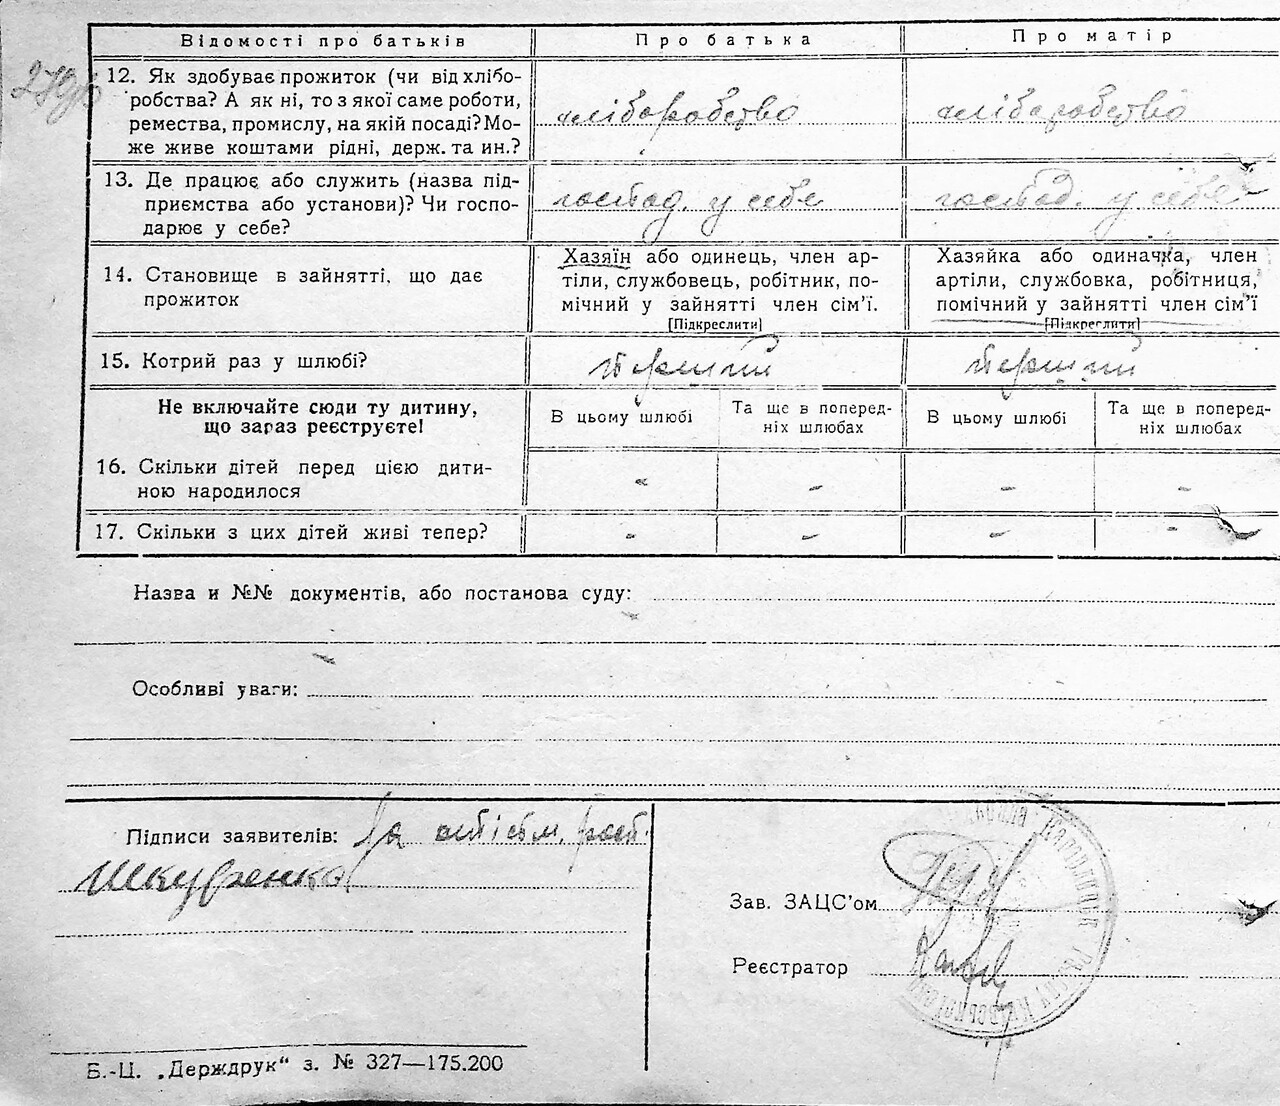 279б
Відомості про батьків
Про батька
Про матір
12. Як здобуває прожиток (чи від хлібо-
робства? А як ні, то з якої саме роботи,
ремества, промислу, на якій посаді? Мо-
же живе коштами рідні, держ. та ин.?
хліборобство
хліборобство
13. Де працює або служить (назва під-
приємства або установи)? Чи госпо-
дарює у себе?
господ. у себе
господ. у себе
14. Становище в зайнятті, що дає
прожиток
Хазяїн або одинець, член ар-
тіли, службовець, робітник, по-
мічний у зайнятті член сім'ї.
[Підкреслити]
Хазяйка або одиначка, член
артіли, службовка, робітниця,
помічний у зайнятті член сім'ї
[Підкреслити]
15. Котрий раз у шлюбі?
Перший
Перший
Не включайте сюди ту дитину,
що зараз реєструєте!
В цьому шлюбі
Та ще в поперед-
ніх шлюбах
В цьому шлюбі
Та ще в поперед-
ніх шлюбах
16. Скільки дітей перед цією дити-
ною народилося
- - - -
17. Скільки з цих дітей живі тепер?
- - - -
Назва и №№ документів, або постанова суду:
Особливі уваги:
Підписи заявителів: За
Шкуренко
Зав. ЗАЦС'ом
Реєстратор
Б.-Ц. „Держдрук" з. № 327—175.200